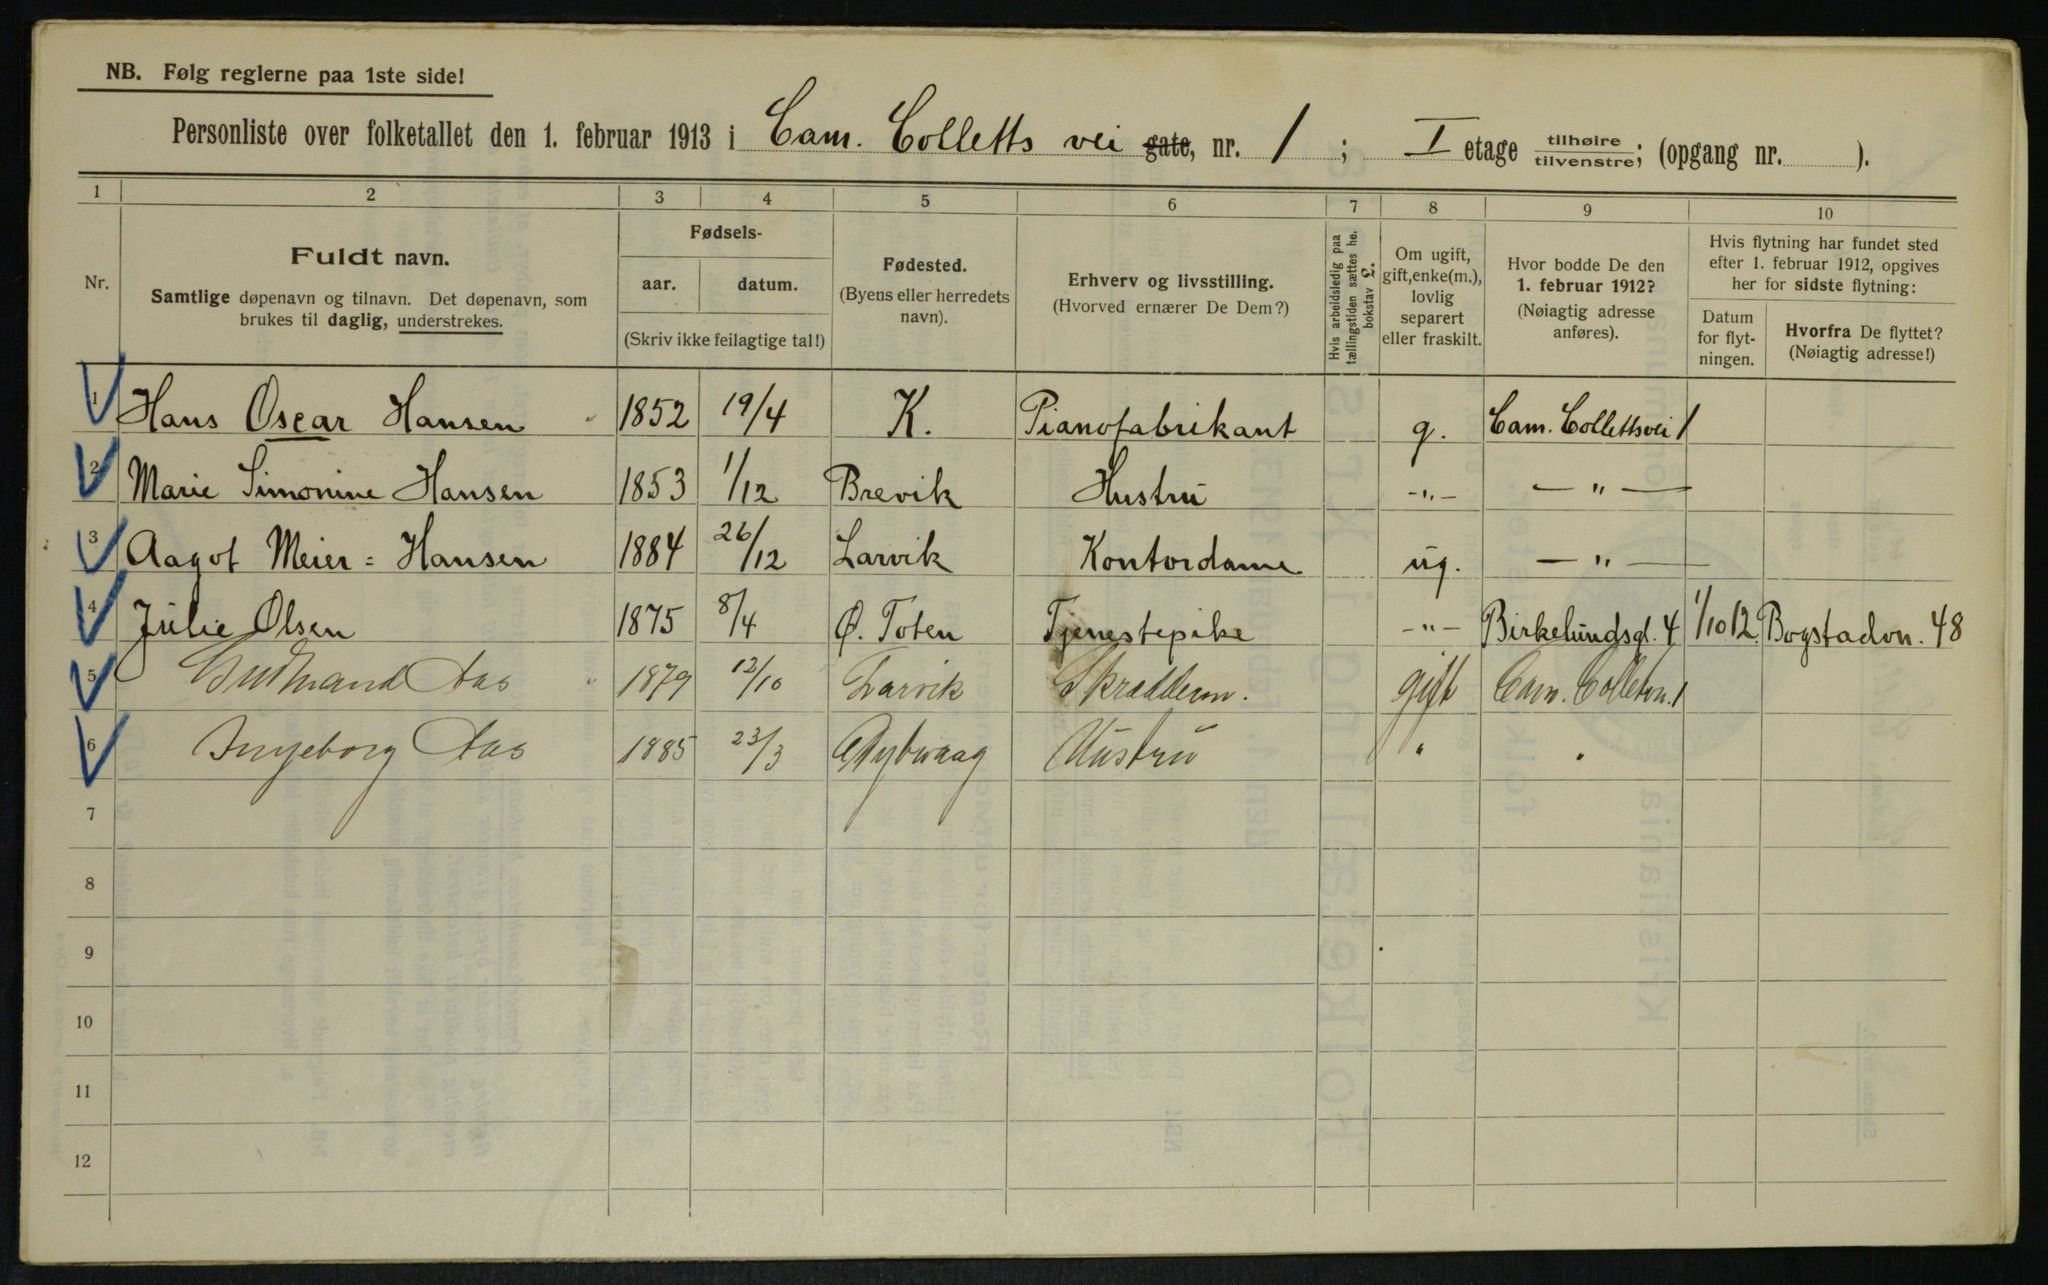 NB. Følg reglerne paa 1ste side!
Personliste over folketallet den 1. februar 1913 i Cam. Colletts vei gate, nr. 1 ; I etage tilhøire tilvenstre; (opgang nr. ).
1 2 3 4 5 6 7 8 9 10
Nr.
Fuldt navn.
Samtlige døpenavn og tilnavn. Det døpenavn, som
brukes til daglig, understrekes.
Fødsels-
aar. datum.
(Skriv ikke feilagtige tal!)
Fødested.
(Byens eller herredets
navn).
Erhverv og livsstilling.
(Hvorved ernærer De Dem?)
Hvis arbeidsledig paa
tællingstiden sættes he.
bokstav L.
Om ugift,
gift, enke(m.),
lovlig
separert
eller fraskilt.
Hvor bodde De den
1. februar 1912?
(Nøiagtig adresse
anføres).
Hvis flytning har fundet sted
efter 1. februar 1912, opgives
her for sidste flytning:
Datum
for flyt-
ningen.
Hvorfra De flyttet?
(Nøiagtig adresse!)
1 Hans Oscar Hansen 1852 19/4 K. Pianofabrikant g. Cam. Collettsvei 1
2 Marie Simonine Hansen 1853 1/12 Brevik Hustru -"- — " —
3 Aagot Meier = Hansen 1884 26/12 Larvik Kontordame ug. — " —
4 Julie Olsen 1875 8/4 Ø. Toten Tjenestepike -"- Birkelundsgt. 4 1/10 12. Bogstadvn. 48
5 Gudbrand Aas 1879 12/10 Larvik Skrædderm. gift Cam. Colletvn. 1
6 Ingeborg Aas 1885 23/3 Dybvaag Hustru " "
7
8
9
10
11
12